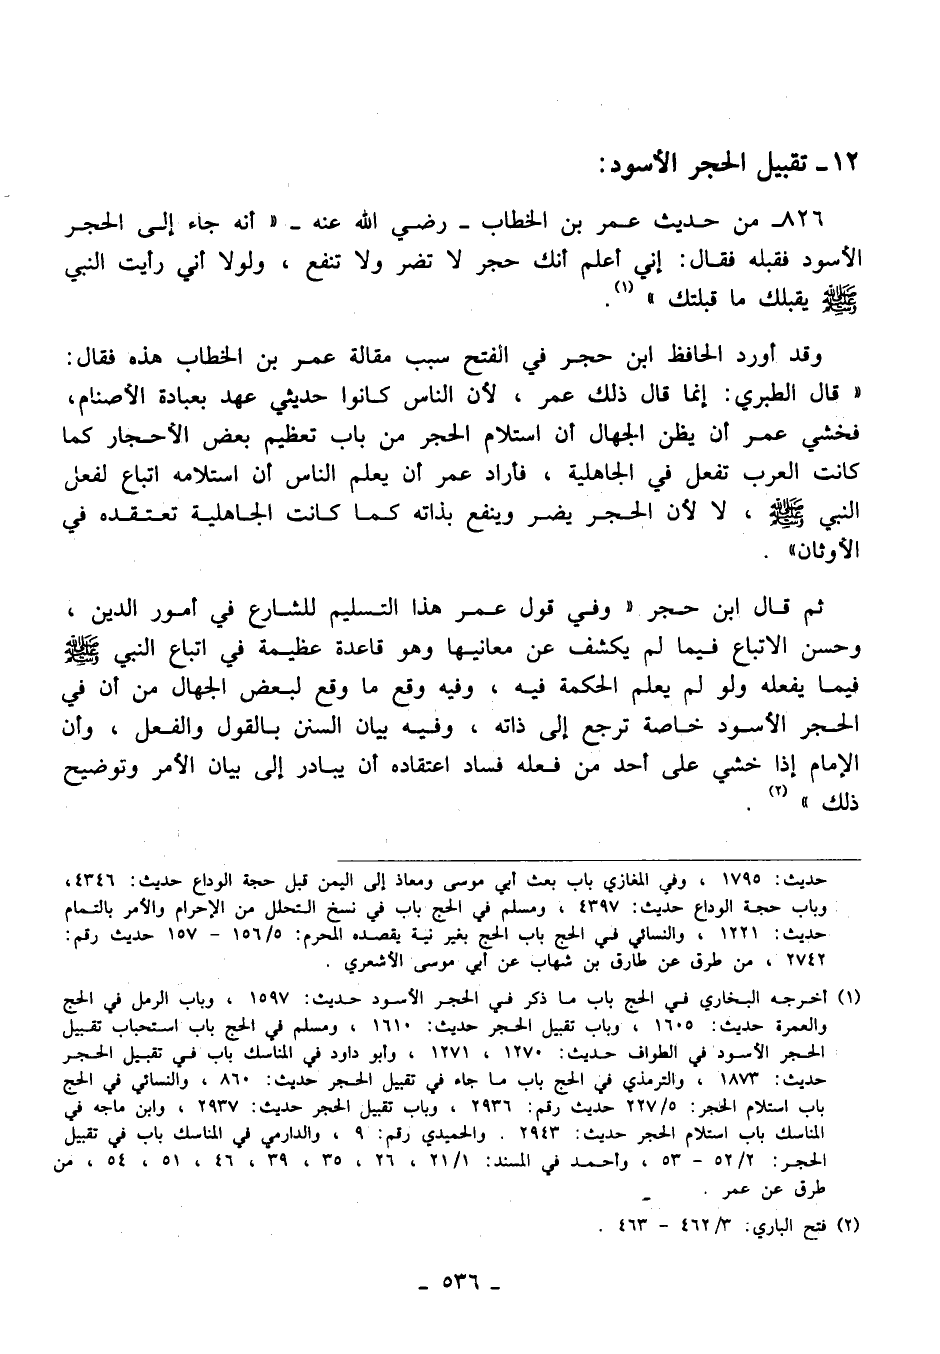 ١٢ـ تقبيل الحجر الأسود:
٨٢٦ـ من حديث عمر بن الخطاب ـ رضي الله عنه ـ « أنه جاء إلى الحجر
الأسود فقبله فقال: إني أعلم أنك حجر لا تضر ولا تنفع ، ولولا أني رأيت النبي
ﷺ يقبلك ما قبلتك » (١).
وقد أورد الحافظ ابن حجر في الفتح سبب مقالة عمر بن الخطاب هذه فقال:
« قال الطبري: إنما قال ذلك عمر ، لأن الناس كانوا حديثي عهد بعبادة الأصنام،
فخشي عمر أن يظن الجهال أن استلام الحجر من باب تعظيم بعض الأحجار كما
كانت العرب تفعل في الجاهلية ، فأراد عمر أن يعلم الناس أن استلامه اتباع لفعل
النبي ﷺ ، لا لأن الحجر يضر وينفع بذاته كما كانت الجاهلية تعتقده في
الأوثان» .
ثم قال ابن حجر « وفي قول عمر هذا التسليم للشارع في أمور الدين ،
وحسن الاتباع فيما لم يكشف عن معانيها وهو قاعدة عظيمة في اتباع النبي ﷺ
فيما يفعله ولو لم يعلم الحكمة فيه ، وفيه وقع ما وقع لبعض الجهال من أن في
الحجر الأسود خاصة ترجع إلى ذاته ، وفيه بيان السنن بالقول والفعل ، وأن
الإمام إذا خشي على أحد من فعله فساد اعتقاده أن يبادر إلى بيان الأمر وتوضيح
ذلك » (٢) .
حديث: ١٧٩٥ ، وفي المغازي باب بعث أبي موسى ومعاذ إلى اليمن قبل حجة الوداع حديث: ٤٣٤٦،
وباب حجة الوداع حديث: ٤٣٩٧ ، ومسلم في الحج باب في نسخ التحلل من الإحرام والأمر بالتمام
حديث: ١٢٢١ ، والنسائي في الحج باب الحج بغير نية يقصده المحرم: ١٥٦/٥ - ١٥٧ حديث رقم:
٢٧٤٢ ، من طرق عن طارق بن شهاب عن أبي موسى الأشعري .
(١) أخرجه البخاري في الحج باب ما ذكر في الحجر الأسود حديث: ١٥٩٧ ، وباب الرمل في الحج
والعمرة حديث: ١٦٠٥ ، وباب تقبيل الحجر حديث: ١٦١٠ ، ومسلم في الحج باب استحباب تقبيل
الحجر الأسود في الطواف حديث: ١٢٧٠ ، ١٢٧١ ، وأبو داود في المناسك باب في تقبيل الحجر
حديث: ١٨٧٣ ، والترمذي في الحج باب ما جاء في تقبيل الحجر حديث: ٨٦٠ ، والنسائي في الحج
باب استلام الحجر: ٢٢٧/٥ حديث رقم: ٢٩٣٦ ، وباب تقبيل الحجر حديث: ٢٩٣٧ ، وابن ماجه في
المناسك باب استلام الحجر حديث: ٢٩٤٣ . والحميدي رقم: ٩ ، والدارمي في المناسك باب في تقبيل
الحجر: ٥٢/٢ - ٥٣ ، وأحمد في المسند: ٢١/١ ، ٢٦ ، ٣٥ ، ٣٩ ، ٤٦ ، ٥١ ، ٥٤ ، من
طرق عن عمر .
(٢) فتح الباري: ٤٦٢/٣ - ٤٦٣ .
ـ ٥٣٦ ـ